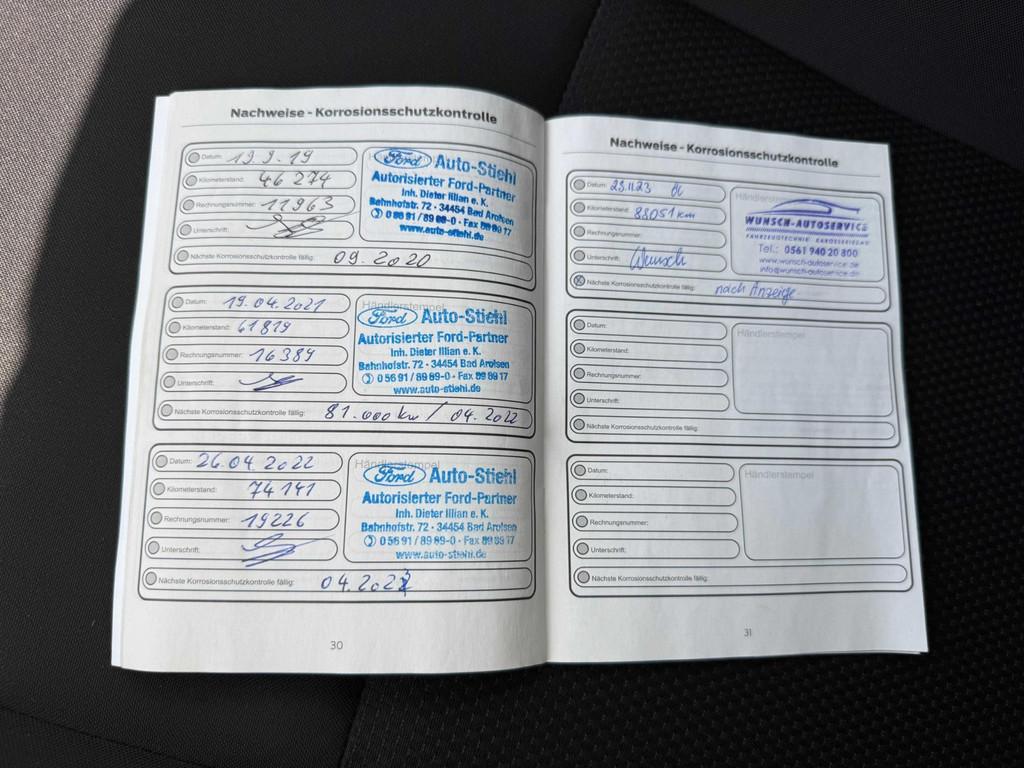 Nachweise - Korrosionsschutzkontrolle
Datum: 19.9.19
Kilometerstand: 46 274
Rechnungsnummer: 11963
Unterschrift:
Nächste Korrosionsschutzkontrolle fällig: 09.2020
Ford Auto-Stiehl
Autorisierter Ford-Partner
Inh. Dieter Illian e. K.
Bahnhofstr. 72 · 34454 Bad Arolsen
0 56 91 / 89 89-0 · Fax 89 89 17
www.auto-stiehl.de
Datum: 19.04.2021
Kilometerstand: 61819
Rechnungsnummer: 16384
Unterschrift:
Nächste Korrosionsschutzkontrolle fällig: 81.000 km / 04.2022
Händlerstempel
Ford Auto-Stiehl
Autorisierter Ford-Partner
Inh. Dieter Illian e. K.
Bahnhofstr. 72 · 34454 Bad Arolsen
0 56 91 / 89 89-0 · Fax 89 89 17
www.auto-stiehl.de
Datum: 26.04.2022
Kilometerstand: 74 141
Rechnungsnummer: 19226
Unterschrift:
Nächste Korrosionsschutzkontrolle fällig: 04.2023
Händlerstempel
Ford Auto-Stiehl
Autorisierter Ford-Partner
Inh. Dieter Illian e. K.
Bahnhofstr. 72 · 34454 Bad Arolsen
0 56 91 / 89 89-0 · Fax 89 89 17
www.auto-stiehl.de
30
Nachweise - Korrosionsschutzkontrolle
Datum: 23.11.23
Kilometerstand: 88051 km
Rechnungsnummer:
Unterschrift: Wunsch
Nächste Korrosionsschutzkontrolle fällig: nach Anzeige
Händlerstempel
WUNSCH-AUTOSERVICE
FAHRZEUGTECHNIK
Tel.: 0561 940 20 800
www.wunsch-autoservice.de
info@wunsch-autoservice.de
Datum:
Kilometerstand:
Rechnungsnummer:
Unterschrift:
Nächste Korrosionsschutzkontrolle fällig:
Händlerstempel
Datum:
Kilometerstand:
Rechnungsnummer:
Unterschrift:
Nächste Korrosionsschutzkontrolle fällig:
Händlerstempel
31